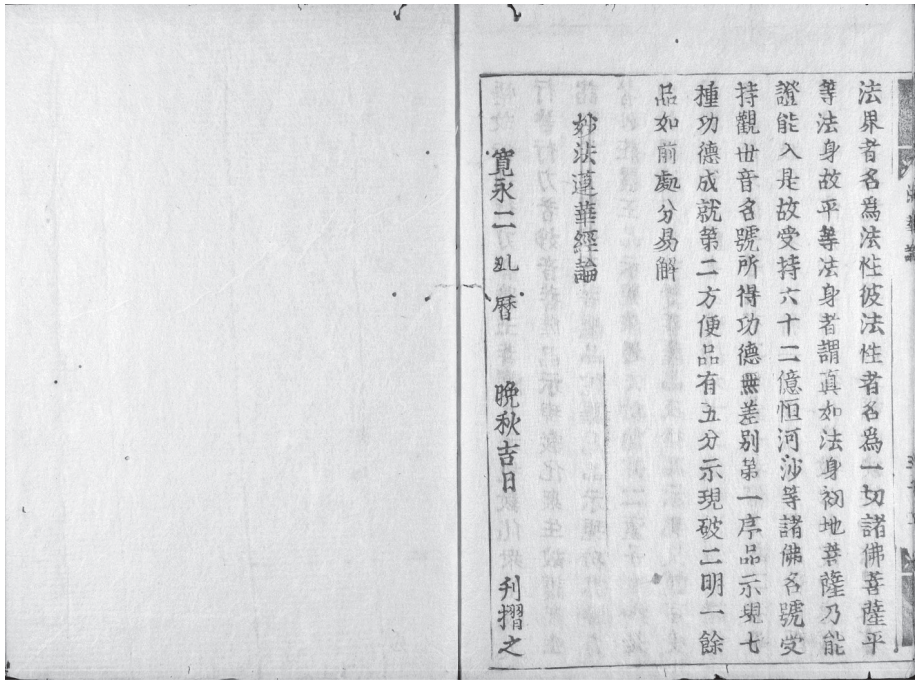 法界者名為法性彼法性者名為一切諸佛菩薩平
等法身故平等法身者謂真如法身初地菩薩乃能
證能入是故受持六十二億恒河沙等諸佛名號受
持觀世音名號所得功德無差別第一序品示現七
種功德成就第二方便品有五分示現破二明一餘
品如前處分易解
妙法蓮華經論
寬永二乩曆 晚秋吉日 刋摺之